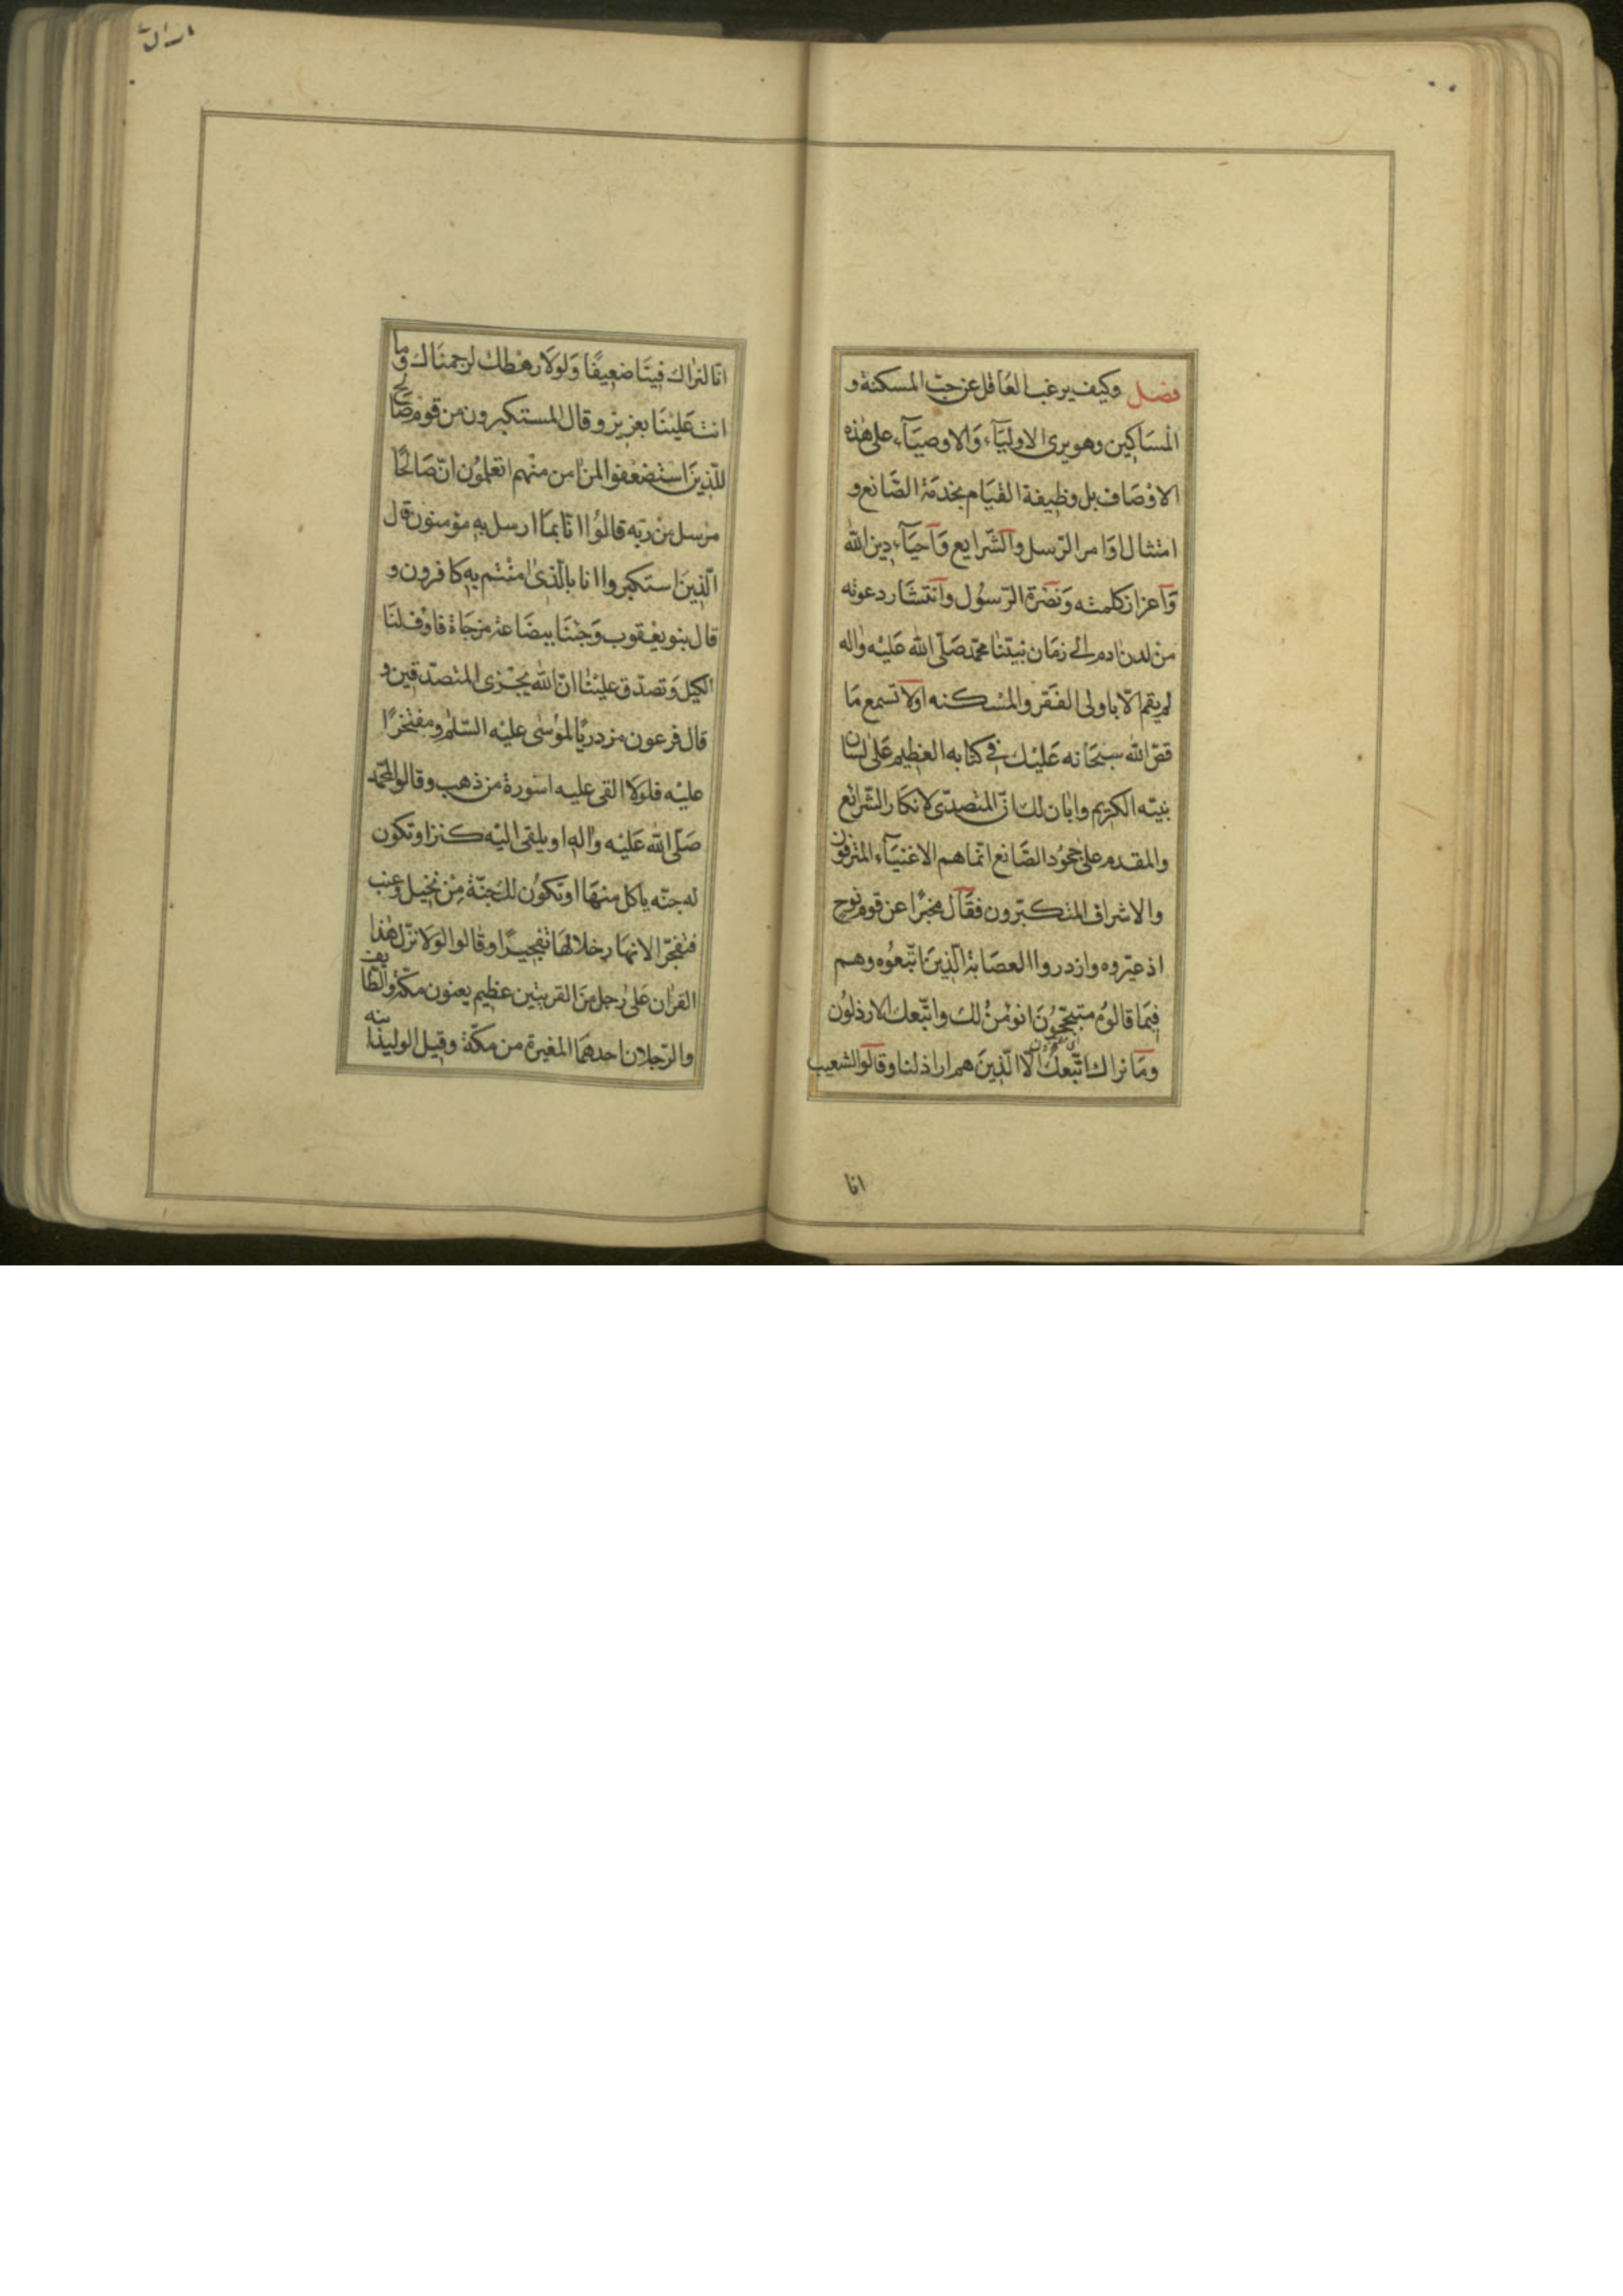 فصل وكيف يرغب العاقل عن حبّ المسكنة و
المساكين وهو يرى الاوليآء والاوصيآء على هذه
الاوصاف بل وظيفة القيام بخدمة الصّانع و
امتثال اوامر الرّسل والشّرايع واحيآء دين الله
واعزاز كلمته ونصرة الرّسول وانتشار دعوته
من لدن ادم الى زمان نبيّنا محمّد صلّى الله عليه واله
لم يقم الّا باولى الفقر والمسكنه اولا تسمع ما
قصّ الله سبحانه عليك في كتابه العظيم على لسان
نبيّه الكريم وابان لك انّ المتصدّى لانكار الشّرائع
والمقدم على جحود الصّانع انّما هم الاغنيآء المترفون
والاشراف المتكبّرون فقال مخبرًا عن قوم نوح
اذ عيّروه وازدروا العصابة الّذين اتّبعوه وهم
فيما قالوه متبجّحون انؤمن لك واتّبعك الارذلون
وما نراك اتّبعك الّا الّذين هم اراذلنا وقالوا لشعيب
انا
انّا لنراك فينا ضعيفًا ولولا رهطك لرجمناك وما
انت علينا بعزيز وقال المستكبرون من قوم صالح
للّذين استضعفوا لمن امن منهم اتعلمون انّ صالحًا
مرسل من ربّه قالوا انّا بما ارسل به مؤمنون قال
الّذين استكبروا انا بالّذى امنتم به كافرون و
قال بنو يعقوب وجئنا ببضاعة مزجاة فاوف لنا
الكيل وتصدّق علينا انّ الله يجزى المتصدّقين و
قال فرعون مزدريًا لموسى عليه السّلم ومفتخرًا
عليه فلولا القى عليه اسورة من ذهب وقالوا لمحمّد
صلّى الله عليه واله او يلقى اليه كنز او تكون
له جنّه ياكل منها او تكون لك جنّة من نخيل وعنب
فتفجّر الانهار خلالها تفجيرًا وقالوا لولا نزّل هذا
القران على رجل من القريتين عظيم يعنون مكّة والطّايف
والرّجلان احدهما المغيرة من مكّة وقيل الوليد ابنه